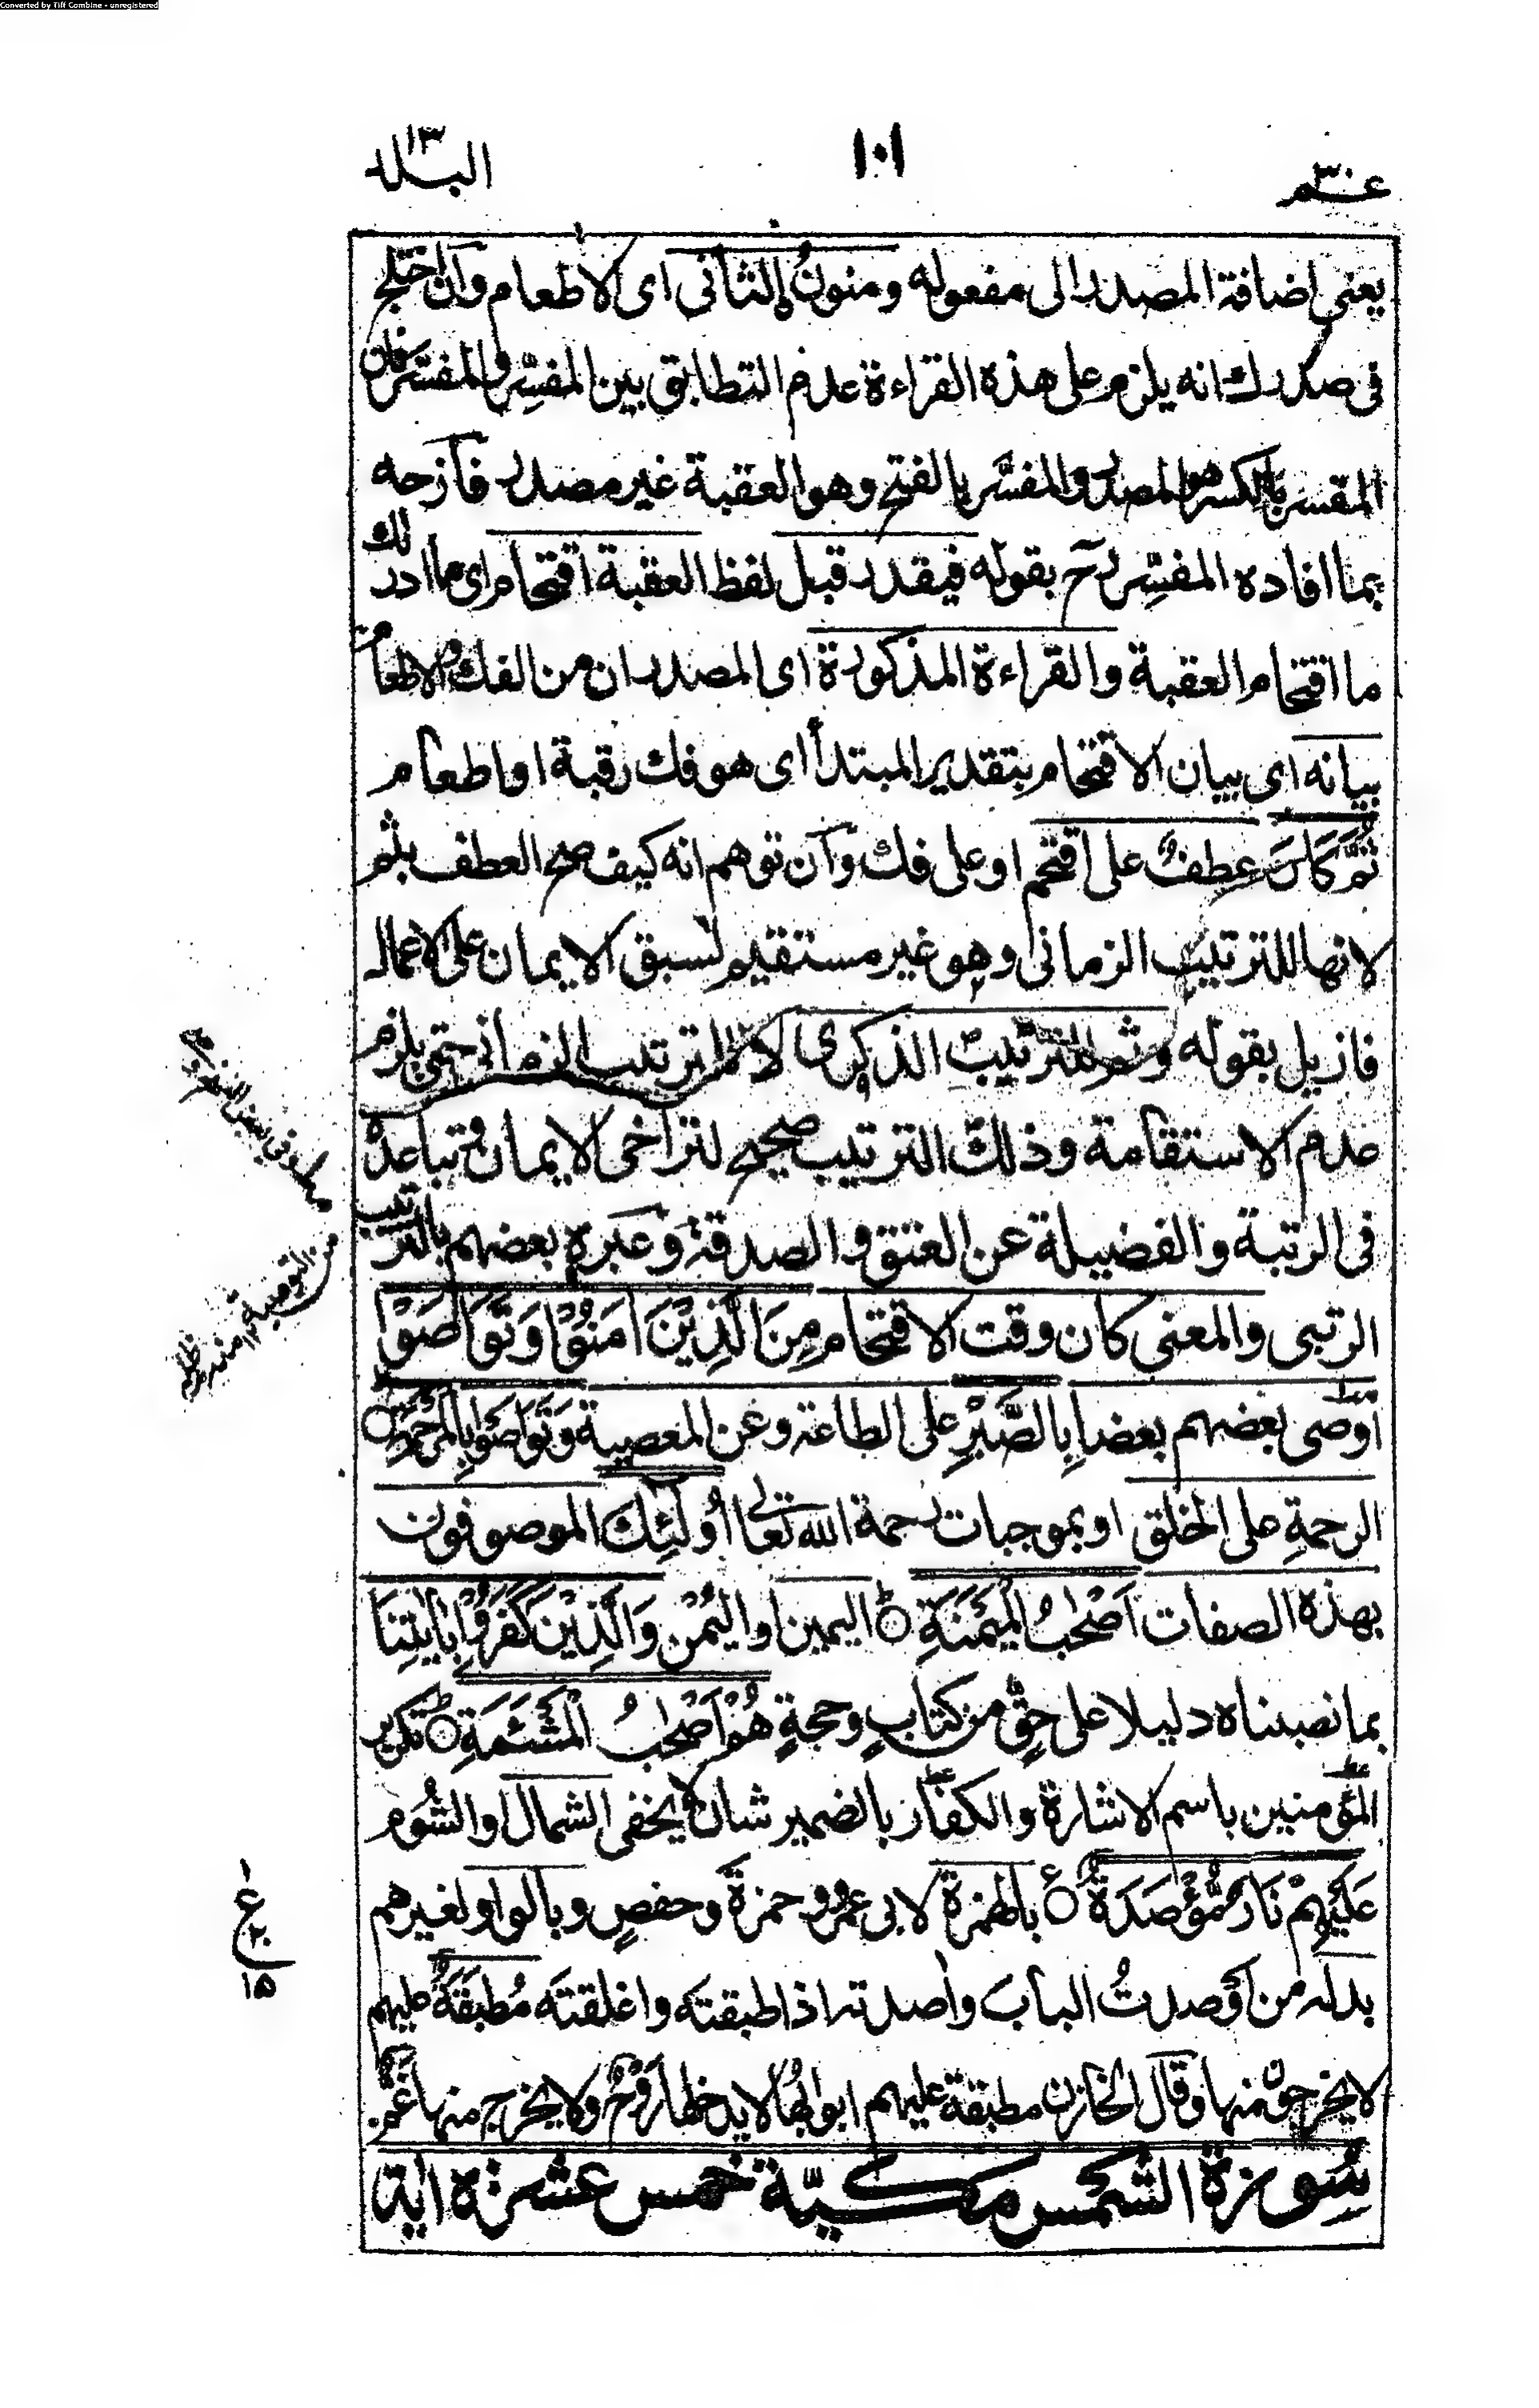 Converted by Tiff Combine - unregistered
عم ٣٠
١٠١
البلد ١٣
يعنى اضافة المصدر الى مفعوله ومنونُ الثانى اى الاطعام وان اختلج
فى صدرك انه يلزم على هذه القراءة عدم التطابق بين المفسِّر والمفسَّر فان
المفسر بالكسر هو المصدر والمفسَّر بالفتح وهو العقبة غير مصدر فازحه
بما افاده المفسِّر رح بقوله فيقدر قبل لفظ العقبة اقتحام اى ما ادرىك
ما اقتحام العقبة والقراءة المذكورة اى المصدر ان من الفك والاطعام
بيانه اى بيان الاقتحام بتقدير المبتدأ اى هو فك رقبة او اطعام
ثُمَّ كَانَ عطفٌ على اقتحم او على فك وان توهم انه كيف صح العطف بثم
لانها للترتيب الزمانى وهو غير مستقيم لسبق الايمان على الاعمال
فازيل بقوله وثم للترتيب الذكرى لا للترتيب الزمانى حتى يلزم
عدم الاستقامة وذلك الترتيب صحيح لتراخى الايمان وتباعده
فى الرتبة والفضيلة عن العتق والصدقة وعبره بعضهم بالترتيب
الرتبى والمعنى كان وقت الاقتحام مِنَ الَّذِيْنَ اٰمَنُوْا وَتَوَاصَوْا
اوصى بعضهم بعضا بِالصَّبْرِ على الطاعة وعن المعصية وَتَوَاصَوْا بِالْمَرْحَمَةِ
الرحمةِ على الخلق او بموجبات رحمة الله تعالى اُولٰٓئِكَ الموصوفون
بهذه الصفات اَصْحٰبُ الْمَيْمَنَةِ اليمين او اليُمْن وَالَّذِيْنَ كَفَرُوْا بِاٰيٰتِنَا
بما نصبناه دليلا على حقٍّ من كتابٍ وحجةٍ هُمْ اَصْحٰبُ الْمَشْئَمَةِ تكرير
المؤمنين باسم الاشارة والكفار بالضمير شان لا يخفى الشمال والشُوم
عَلَيْهِمْ نَارٌ مُّؤْصَدَةٌ بالهمزة لابى عمرو وحمزة وحفصٍ وبالواو لغيرهم
بدله من اوصدتُ الباب واصدته اذا طبقته واغلقته مُطبَقَةٌ عليهم
لا يخرجون منها وقال الخازن مطبقة عليهم ابوابُها لا يدخلها رَوْحٌ ولا يخرج منها غمٌّ
سورة الشمس مكيّة خمس عشرة اية
من التوصية ١٢ منه
١
ع
٢٠
١٥